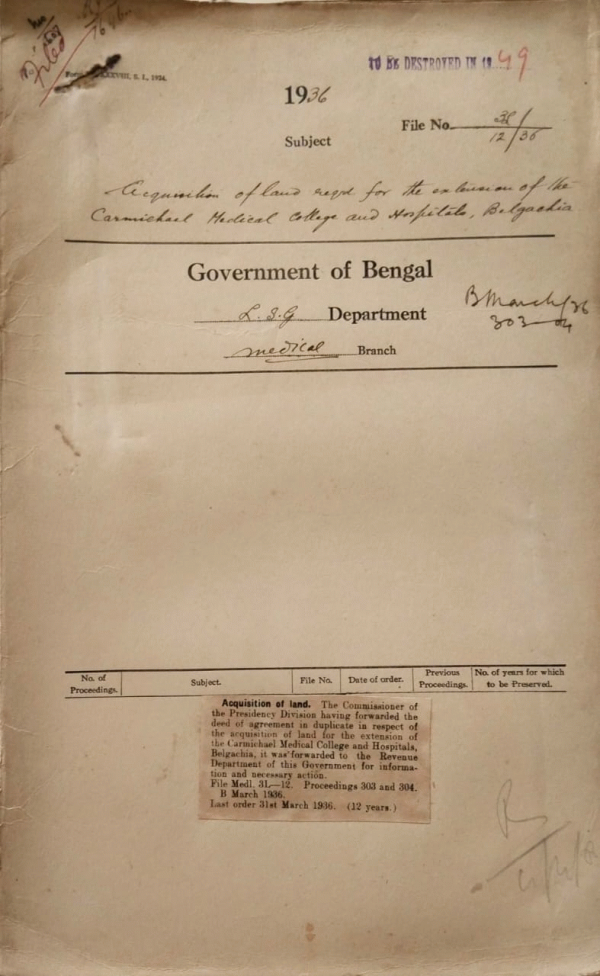 Filed
XXVIII, S. I., 1934.
TO BE DESTROYED IN 1949
1936
File No. 3L/12/36
Subject
Acquisition of land reqd for the extension of the
Carmichael Medical College and Hospitals, Belgachia
Government of Bengal
L.S.G Department
B March/36
303-04
medical Branch
No. of Proceedings. Subject. File No. Date of order. Previous Proceedings. No. of years for which to be Preserved.
Acquisition of land. The Commissioner of
the Presidency Division having forwarded the
deed of agreement in duplicate in respect of
the acquisition of land for the extension of
the Carmichael Medical College and Hospitals,
Belgachia, it was forwarded to the Revenue
Department of this Government for informa-
tion and necessary action.
File Medl. 3L—12. Proceedings 303 and 304.
B March 1936.
Last order 31st March 1936. (12 years.)